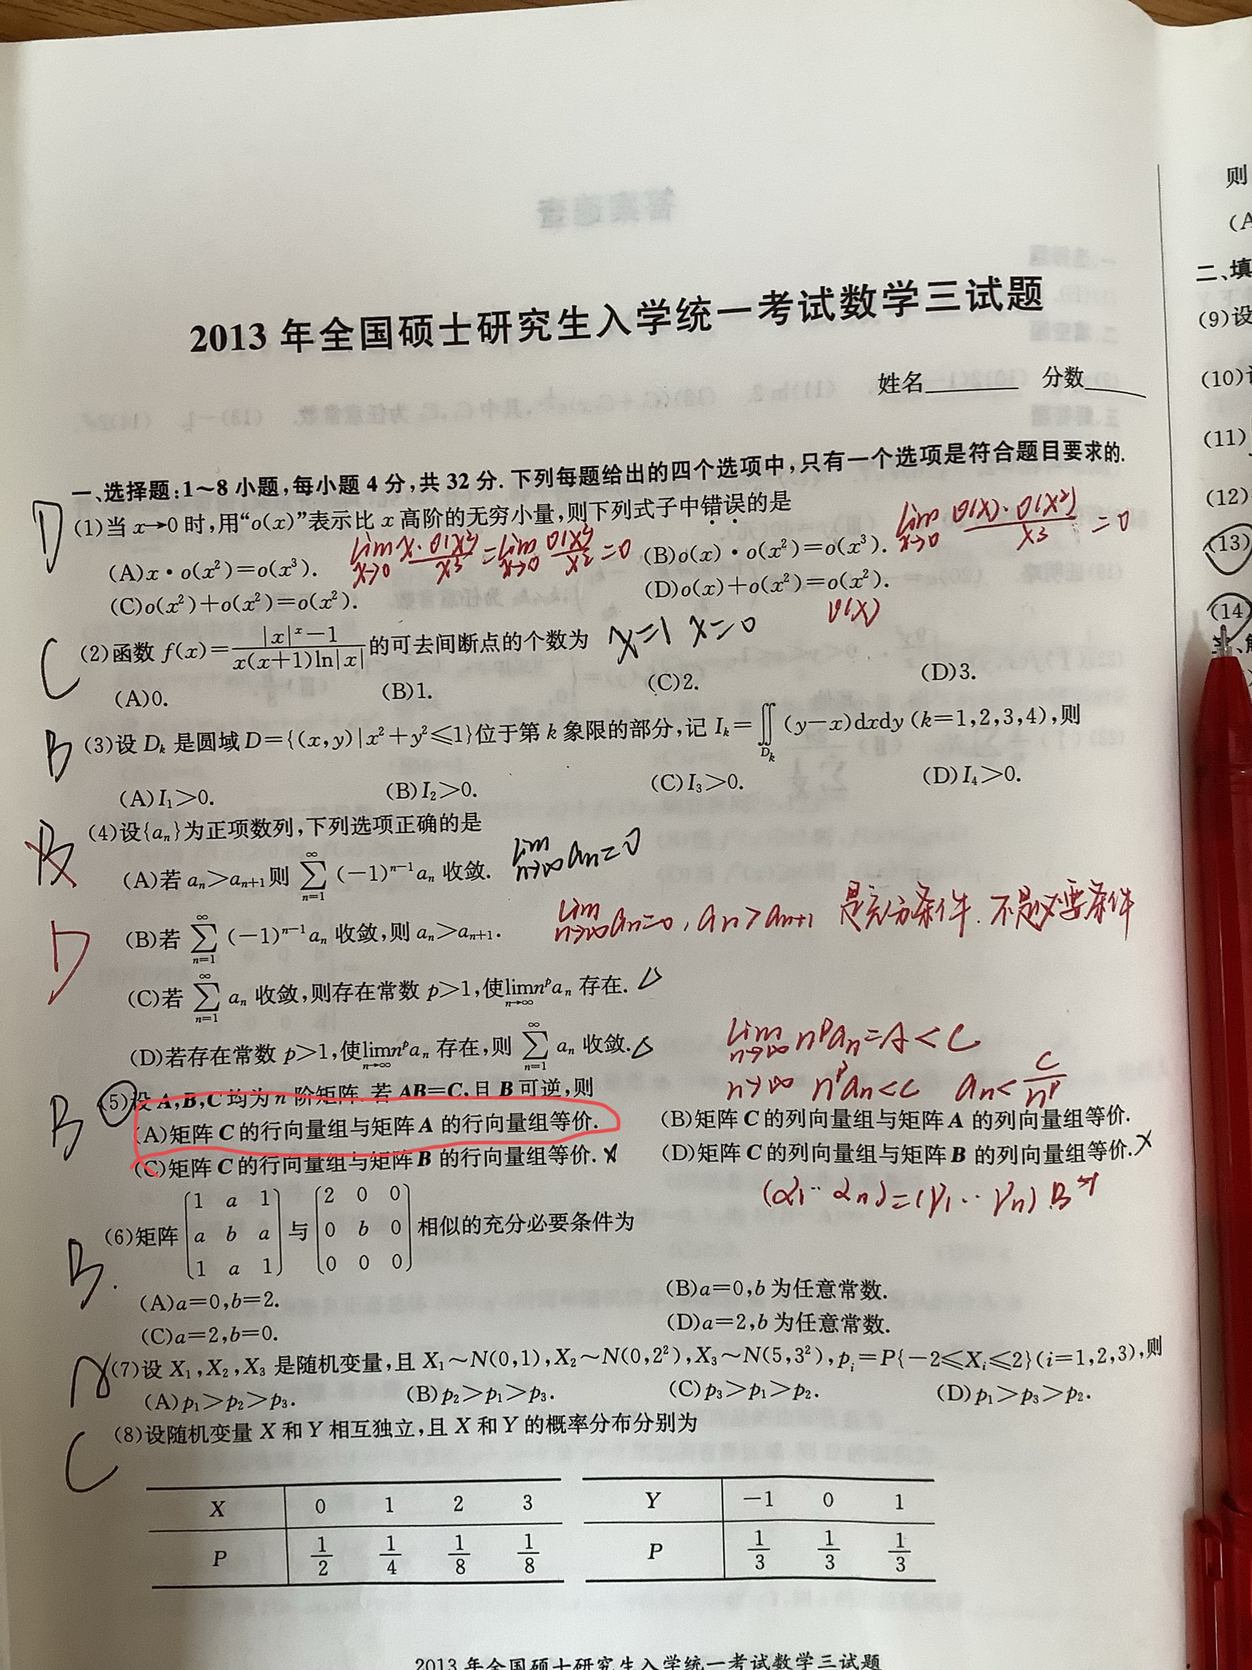 则
(A
二、填
(9)设
(10)设
(11)
(12)
(13)
(14)
2013 年全国硕士研究生入学统一考试数学三试题
姓名________ 分数________
一、选择题:1~8 小题,每小题 4 分,共 32 分. 下列每题给出的四个选项中,只有一个选项是符合题目要求的.
D (1)当 x→0 时,用“o(x)”表示比 x 高阶的无穷小量,则下列式子中错误的是
(A)x·o(x²)=o(x³). lim x→0 x·o(x²)/x³ = lim x→0 o(x²)/x² =0 (B)o(x)·o(x²)=o(x³). lim x→0 o(x)·o(x²)/x³ =0
(C)o(x²)+o(x²)=o(x²). (D)o(x)+o(x²)=o(x²).
o(x)
C (2)函数 f(x)=(|x|ˣ-1)/(x(x+1)ln|x|)的可去间断点的个数为 x=1 x=0
(A)0. (B)1. (C)2. (D)3.
B (3)设 Dₖ 是圆域 D={(x,y)|x²+y²≤1}位于第 k 象限的部分,记 Iₖ=∬Dₖ (y-x)dxdy (k=1,2,3,4),则
(A)I₁>0. (B)I₂>0. (C)I₃>0. (D)I₄>0.
(4)设{aₙ}为正项数列,下列选项正确的是
B (A)若 aₙ>aₙ₊₁则 ∑n=1 ∞ (-1)ⁿ⁻¹aₙ 收敛. lim n→∞ aₙ=0
D (B)若 ∑n=1 ∞ (-1)ⁿ⁻¹aₙ 收敛,则 aₙ>aₙ₊₁. lim n→∞ aₙ=0, aₙ>aₙ₊₁ 是充分条件. 不是必要条件
(C)若 ∑n=1 ∞ aₙ 收敛,则存在常数 p>1,使lim n→∞ nᵖaₙ 存在. △
(D)若存在常数 p>1,使lim n→∞ nᵖaₙ 存在,则 ∑n=1 ∞ aₙ 收敛. △ lim n→∞ nᵖaₙ=A<C
n→∞ nᵖaₙ<C aₙ<C/nᵖ
B (5)设 A,B,C 均为 n 阶矩阵.若 AB=C,且 B 可逆,则
(A)矩阵 C 的行向量组与矩阵 A 的行向量组等价. (B)矩阵 C 的列向量组与矩阵 A 的列向量组等价.
(C)矩阵 C 的行向量组与矩阵 B 的行向量组等价. × (D)矩阵 C 的列向量组与矩阵 B 的列向量组等价. ×
(α₁··αₙ)=(γ₁··γₙ)B⁻¹
B. (6)矩阵 (1 a 1; a b a; 1 a 1) 与 (2 0 0; 0 b 0; 0 0 0) 相似的充分必要条件为
(A)a=0,b=2. (B)a=0,b 为任意常数.
(C)a=2,b=0. (D)a=2,b 为任意常数.
A (7)设 X₁,X₂,X₃ 是随机变量,且 X₁~N(0,1),X₂~N(0,2²),X₃~N(5,3²),pᵢ=P{-2≤Xᵢ≤2}(i=1,2,3),则
(A)p₁>p₂>p₃. (B)p₂>p₁>p₃. (C)p₃>p₁>p₂. (D)p₁>p₃>p₂.
C (8)设随机变量 X 和 Y 相互独立,且 X 和 Y 的概率分布分别为
X 0 1 2 3 Y -1 0 1
P 1/2 1/4 1/8 1/8 P 1/3 1/3 1/3
2013 年全国硕士研究生入学统一考试数学三试题